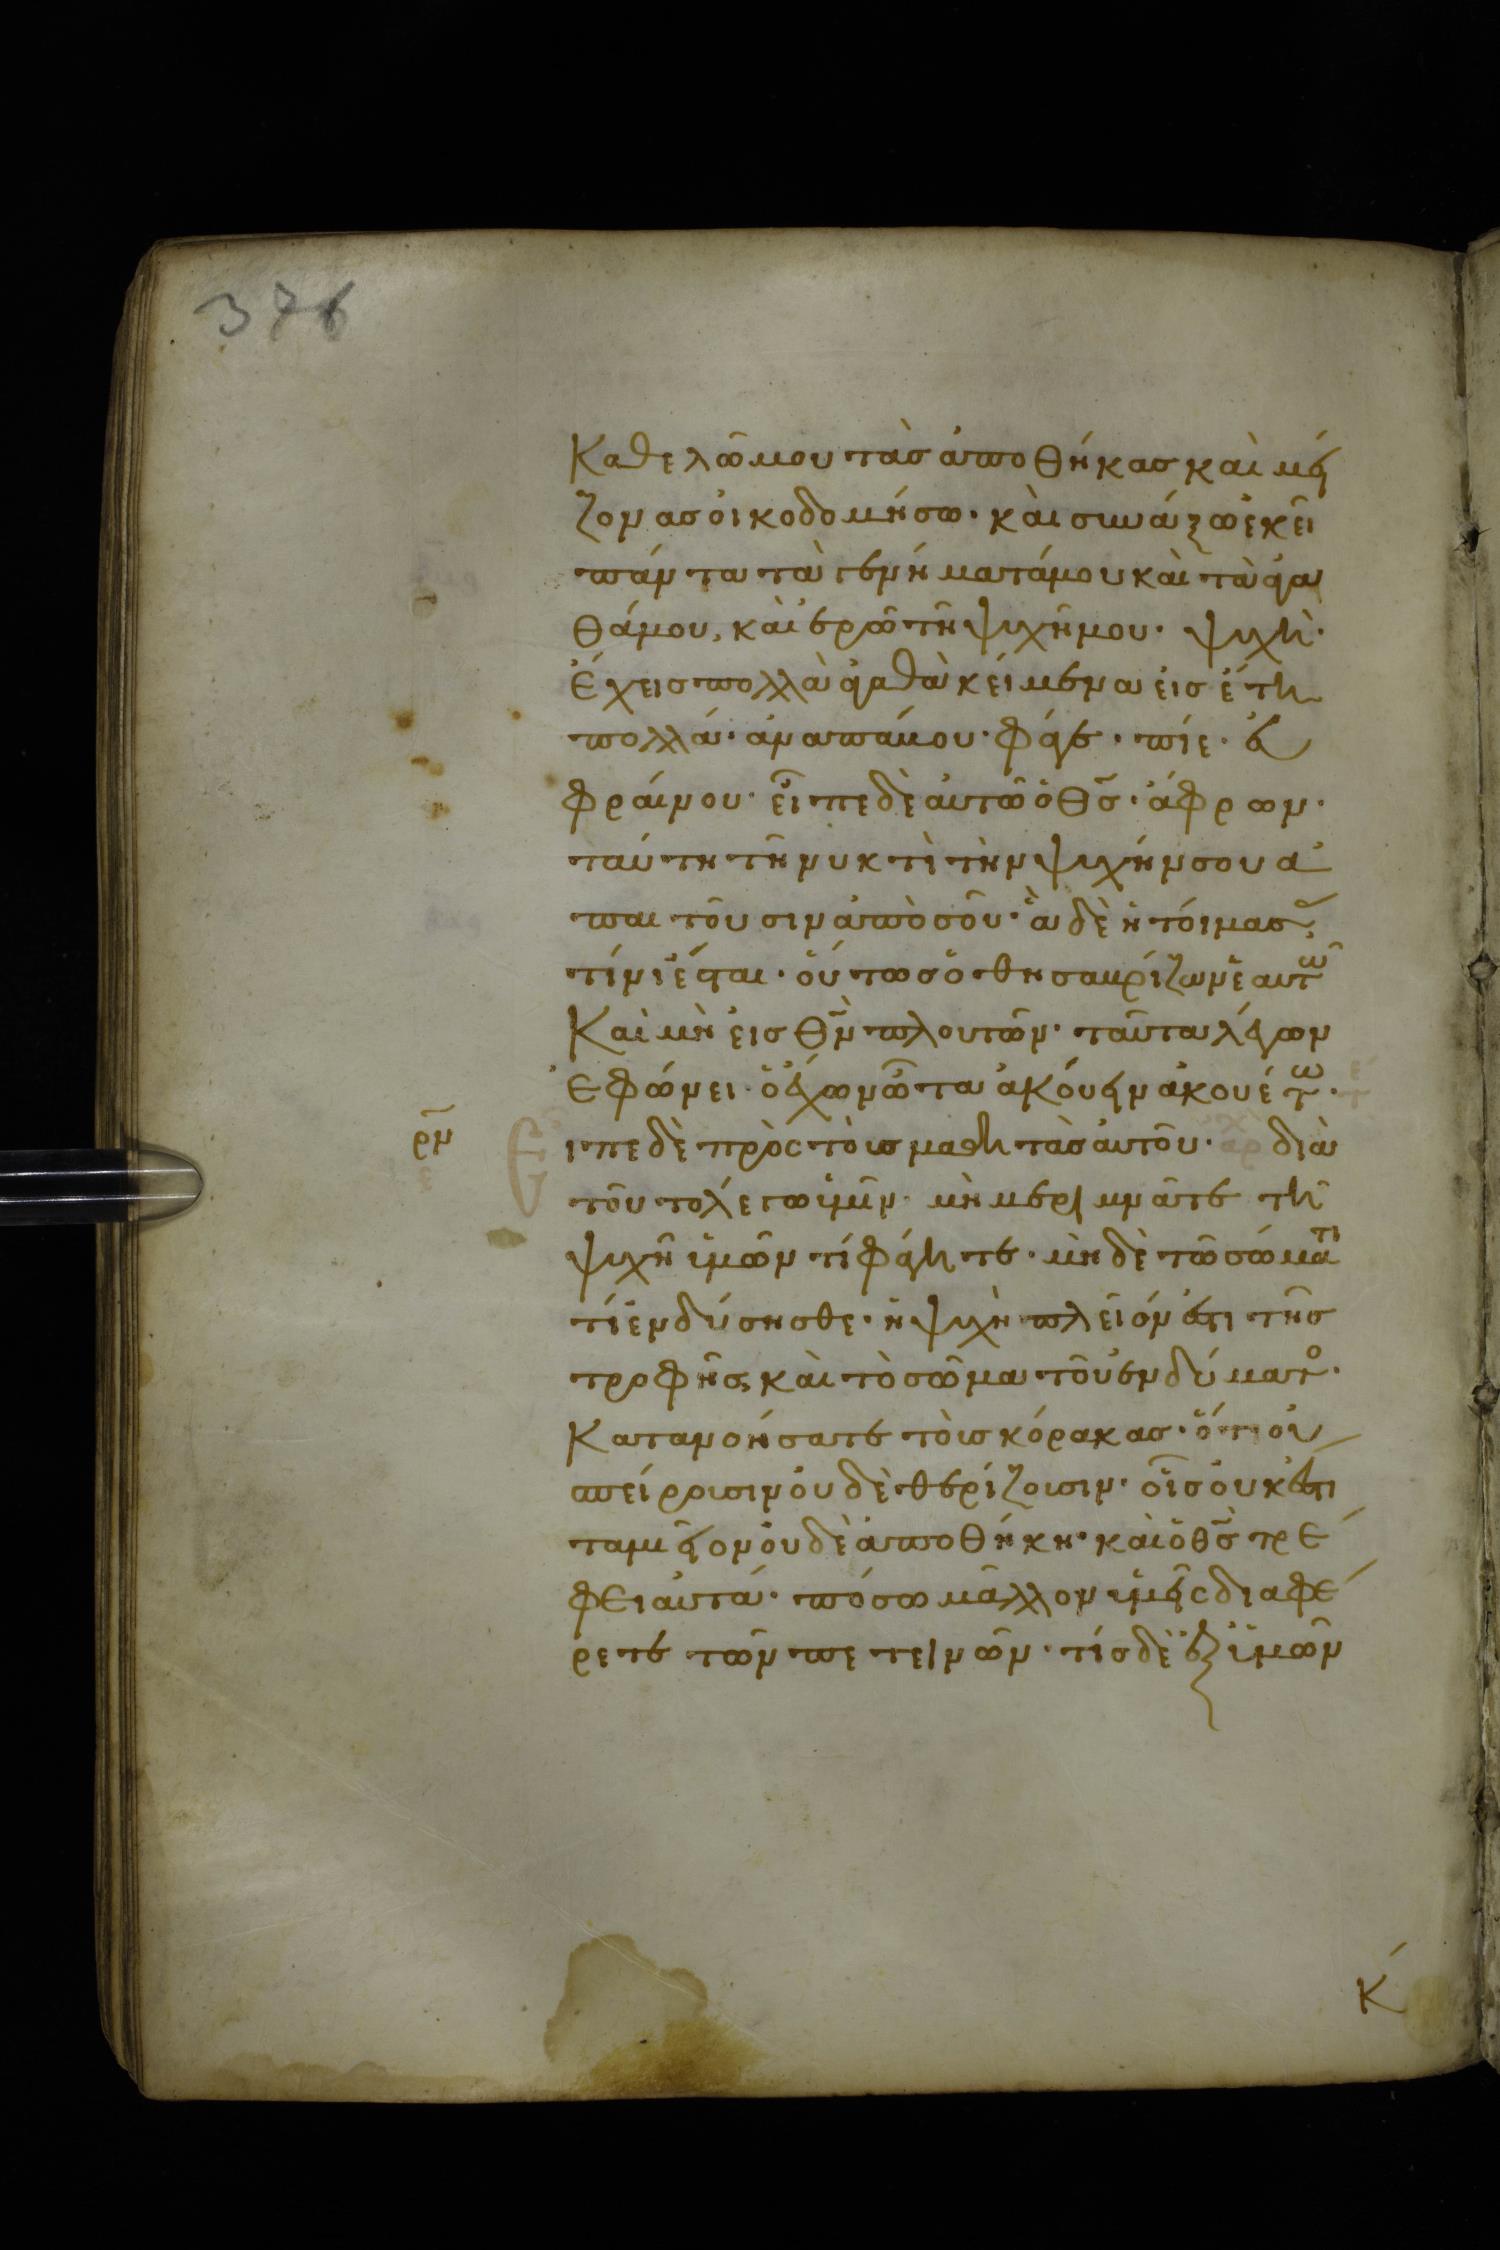 376
Καθελῶ μου τὰσ ἀποθήκασ καὶ μεί
ζονασ οἰκοδομήσω· καὶ συνάξω ἐκεῖ
πάντα τὰ γενήματά μου καὶ τὰ ἀγα
θά μου, καὶ ἐρῶ τῆ ψυχῆ μου· ψυχὴ·
ἔχεισ πολλὰ ἀγαθὰ κείμενα εἰσ ἔτη
πολλά· ἀναπαύου· φάγε· πίε· εὐ
φραίνου· εἶπε δὲ αὐτῶ ὁ θ̅σ̅· ἄφρων·
ταύτη τῆ νυκτὶ τὴν ψυχήν σου ἀ
παιτοῦσιν ἀπὸ σοῦ· ἃ δὲ ἡτοίμασασ,
τίνι ἔσται· οὕτωσ ὁ θησαυρίζων ἑαυτῶ
Καὶ μὴ εἰσ θ̅ν̅ πλουτῶν· ταῦτα λέγων
ἐφώνει· ὁ ἔχων ὦτα ἀκούειν ἀκουέτω·
ρν̅
ε
Εἶπε δὲ πρὸς τοὺσ μαθητὰσ αὐτοῦ· ἀρχ διὰ
τοῦτο λέγω ὑμῖν· μὴ μεριμνᾶτε τῆ
ψυχῆ ὑμῶν τί φάγητε· μὴ δὲ τῶ σώματι
τί ἐνδύσησθε· ἡ ψυχὴ πλεῖόν ἐστι τῆσ
τροφῆσ, καὶ τὸ σῶμα τοῦ ἐνδύματο·
Κατανοήσατε τοὺσ κόρακασ· ὅτι οὐ
σπείρουσιν οὐδὲ θερίζουσιν· οἷσ οὐκ ἔστι
ταμεῖον οὐδὲ ἀποθήκη· καὶ ὁ θ̅σ̅ τρέ
φει αὐτά· πόσω μᾶλλον ὑμεῖς διαφέ
ρετε τῶν πετεινῶν· τίσ δὲ ἐξ ὑμῶν
Κ